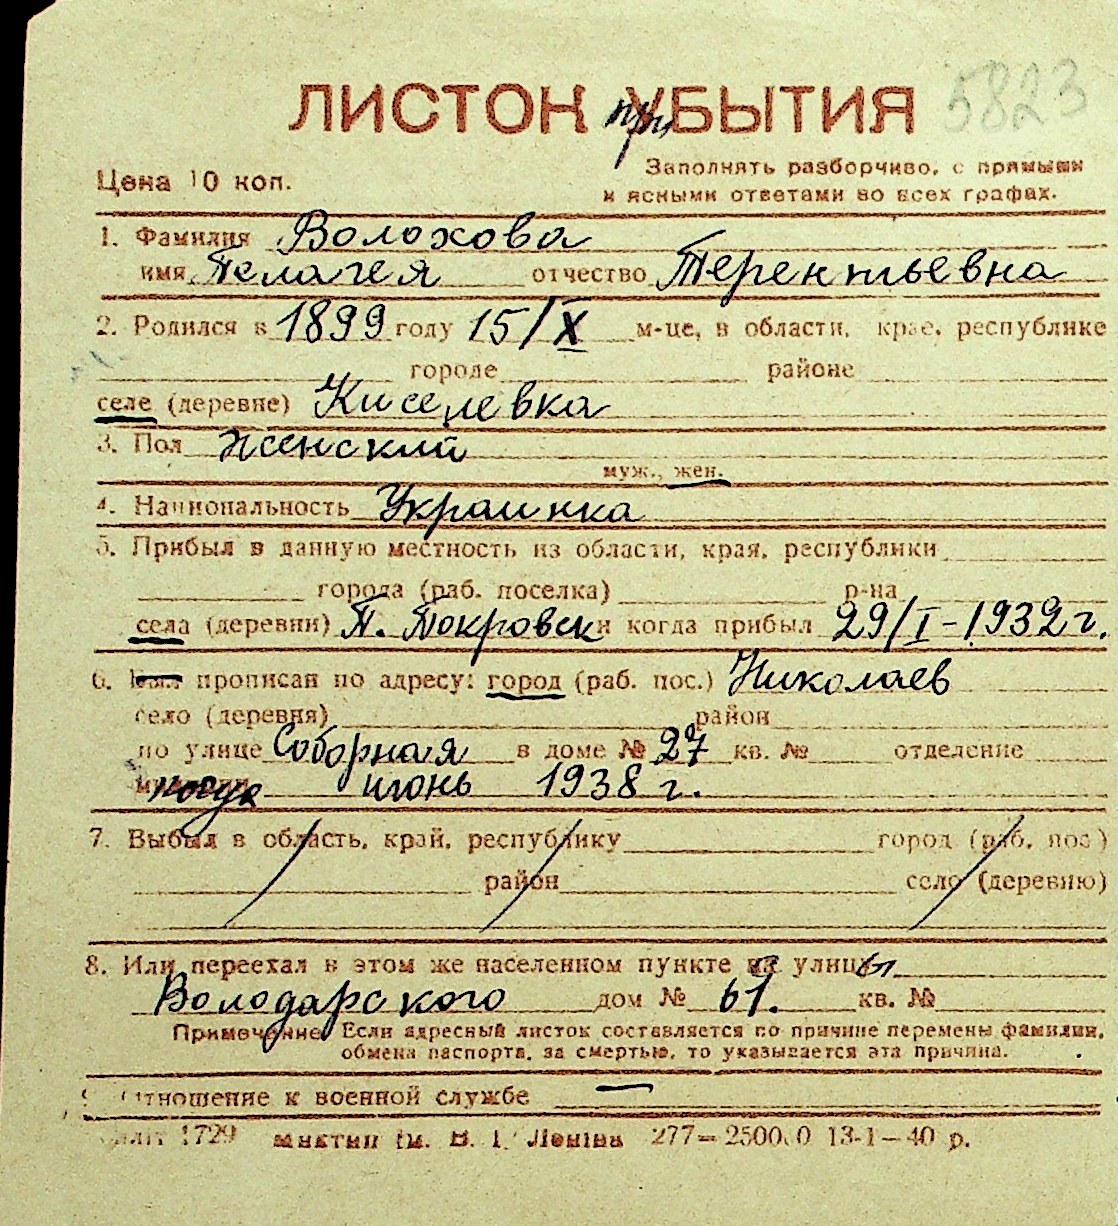 ЛИСТОК прибытия 5823
Цена 10 коп. Заполнять разборчиво, с прямыми
и ясными ответами во всех графах.
1. Фамилия Волохова
имя Пелагея отчество Терентьевна
2. Родился в 1899 году 15/X м-це, в области, крае, республике
городе районе
селе (деревне) Киселевка
3. Пол женский
муж., жен.
4. Национальность Украинка
5. Прибыл в данную местность из области, края, республики
города (раб. поселка) р-на
села (деревни) П. Покровск и когда прибыл 29/I-1932 г.
6. прописан по адресу: город (раб. пос.) Николаев
село (деревня) район
по улице Соборная в доме № 27 кв. № отделение
когда июнь 1938 г.
7. Выбыл в область, край, республику город (раб. пос.)
район село (деревню)
8. Или переехал в этом же населенном пункте улицы
Володарского дом № 61. кв. №
Примечание. Если адресный листок составляется по причине перемены фамилии,
обмена паспорта, за смертью, то указывается эта причина.
9. Отношение к военной службе —
1729 им. В. І. Леніна 277— 13-1—40 р.